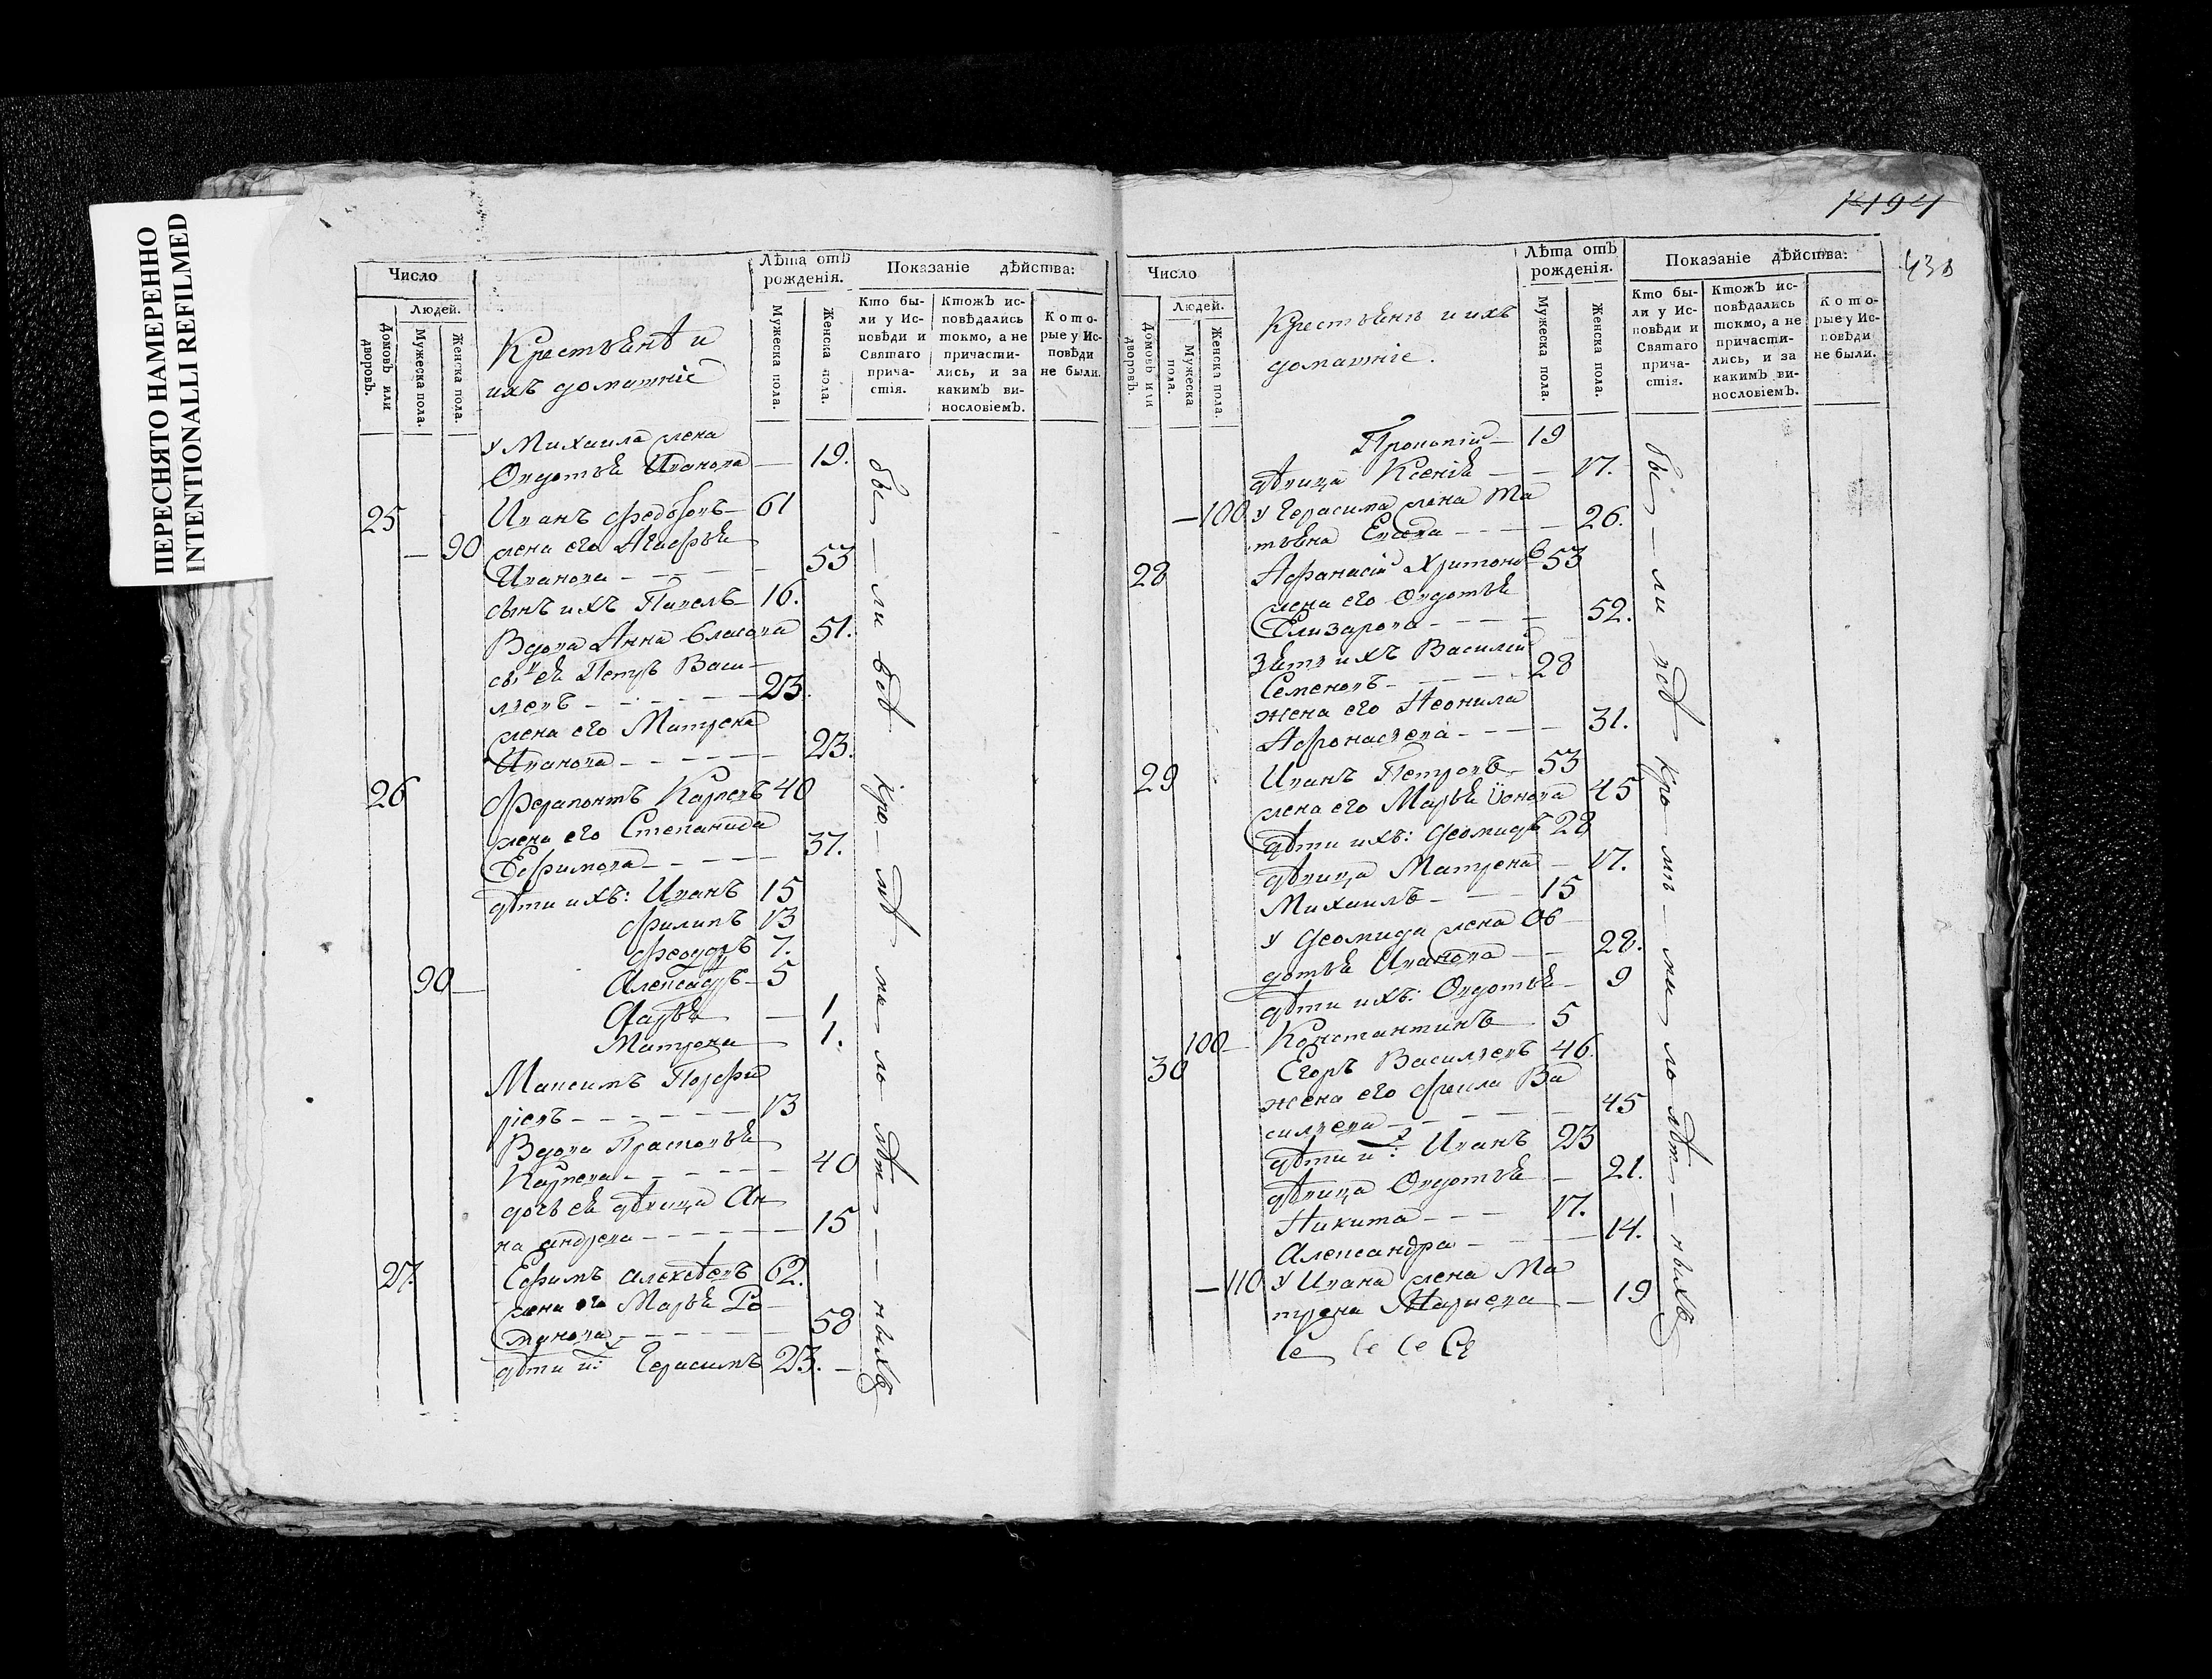 ПЕРЕСНЯТО НАМЕРЕННО
INTENTIONALLI REFILMED
Число
Людей.
Домовъ или дворовъ.
Мужеска пола.
Женска пола.
Крестьянѣ и
ихъ домашніе
Лѣта отъ рожденія.
Мужеска пола.
Женска пола.
Показаніе дѣйства:
Кто были у Исповѣди и Святаго причастія.
Ктожъ исповѣдались токмо, а не причастились, и за какимъ винословіемъ.
Которые у Исповѣди не были.
у Михаила жена
Овдотья Иванова — 19.
25 Иванъ Федоровъ — 61
— 90 жена его Агафья
Иванова — — — 53
сынъ ихъ Павелъ — 16.
Вдова Анна Власова 51.
сынъ ея Петръ Васи-
льевъ — — — 23.
жена его Матрена
Иванова — — — 23.
26 Ферапонтъ Карповъ 40
жена его Степанида
Ефимова — — — 37.
дѣти ихъ: Иванъ 15
Филипъ 13
Феодоръ 7.
90 — Александръ — 5
Дарья — 1
Матрена — 1.
Максимъ Порфи
ріевъ — — — 13
Вдова Прасковья
Карпова — — — 40
дочь ея дѣвица Ан
на андреева — — — 15
27. Ефимъ алексѣевъ 62.
жена его Марья Ро-
манова — — — 58
дѣти их: Герасимъ 23. —
бы — ли всѣ кро — мѣ ма ло лѣт — ныхъ
1194
438
Число
Людей.
Домовъ или дворовъ.
Мужеска пола.
Женска пола.
Крестьянѣ и ихъ
домашніе.
Лѣта отъ рожденія.
Мужеска пола.
Женска пола.
Показаніе дѣйства:
Кто были у Исповѣди и Святаго причастія.
Ктожъ исповѣдались токмо, а не причастились, и за какимъ винословіемъ.
Которые у Исповѣди не были.
Прокопій — 19
дѣвица Ксенія — — 17.
— 100 у Герасима жена Та
тьяна — — — 26.
28 Афанасій Харитоновъ 53
жена его Овдотья
Елизарова — — — 52.
зять ихъ Василій
Семеновъ — — — 28
жена его Неонила
Афонасьева — — — 31.
29 Иванъ Петровъ — 53
жена его Марья Іонова 45
дѣти ихъ: Деомидъ 28
дѣвица Матрена — 17.
Михаилъ — — 15
у Деомида жена Ов-
дотья Иванова — 28.
дѣти ихъ: Овдотья — 9
100 — Константинъ — 5
30 Егоръ Васильевъ 46.
жена его Фекла Ва
сильева — — — 45
дѣти их: Иванъ 23
дѣвица Овдотья — 21.
Никита — — 17.
Александра — — 14.
— 110 у Ивана жена Ма
трена — 19
Се Се Се Се
бы — ли всѣ кро — мѣ — ма ло лѣт — ныхъ